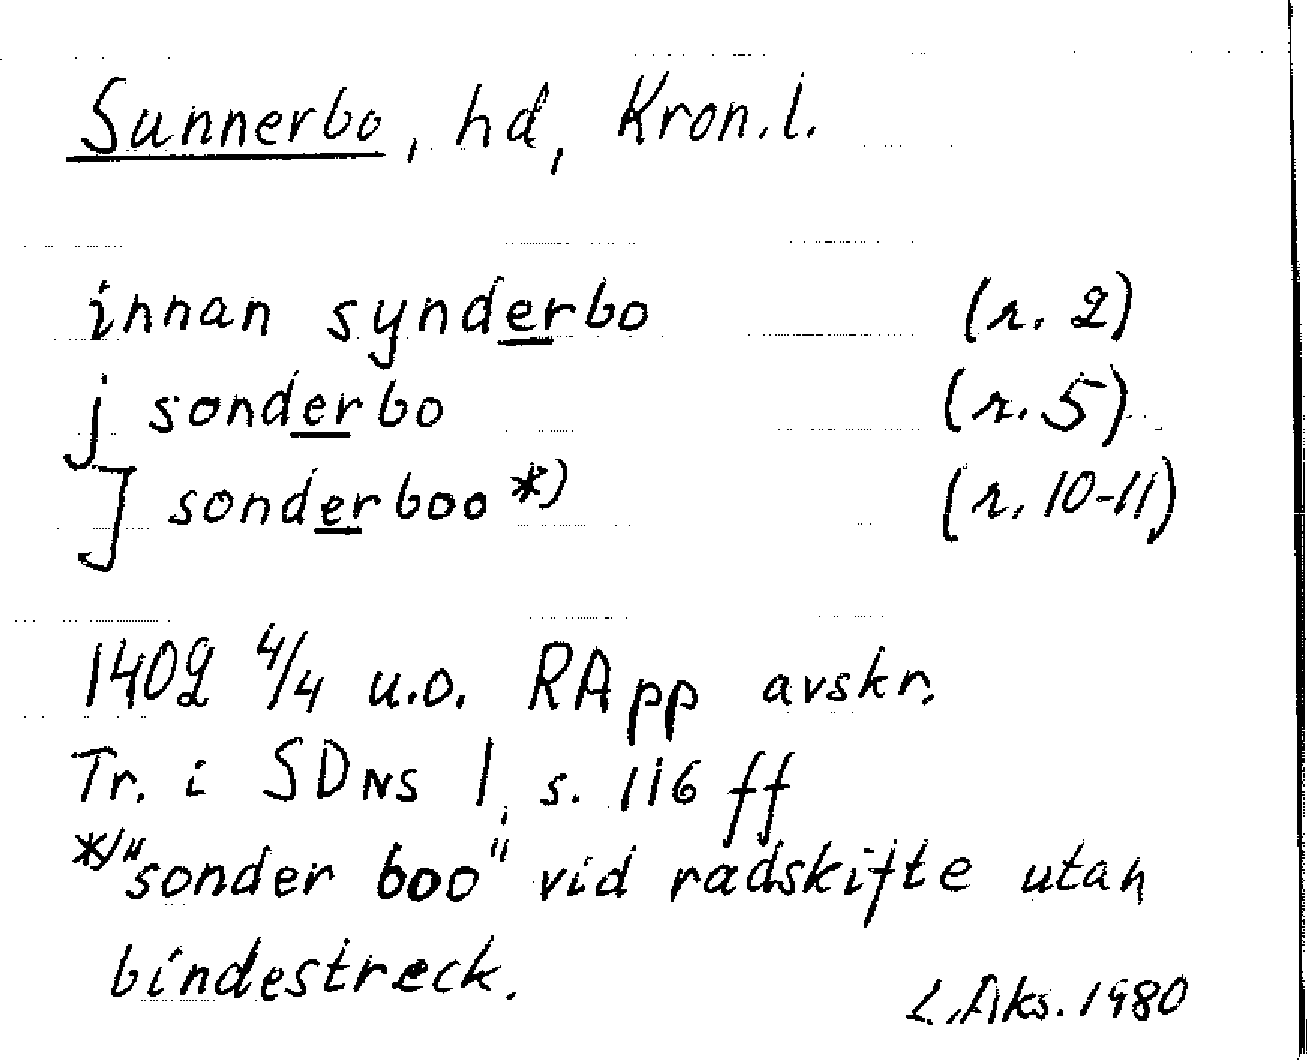 Sunnerbo, hd, Kron.l.
innan synderbo (r. 2)
j sonderbo (r. 5)
J sonderboo *) (r. 10-11)
1402 4/4 u.o. RApp avskr.
Tr. i SDNS 1, s. 116 ff
*) "sonder boo" vid radskifte utan
bindestreck.
L. Aks. 1980